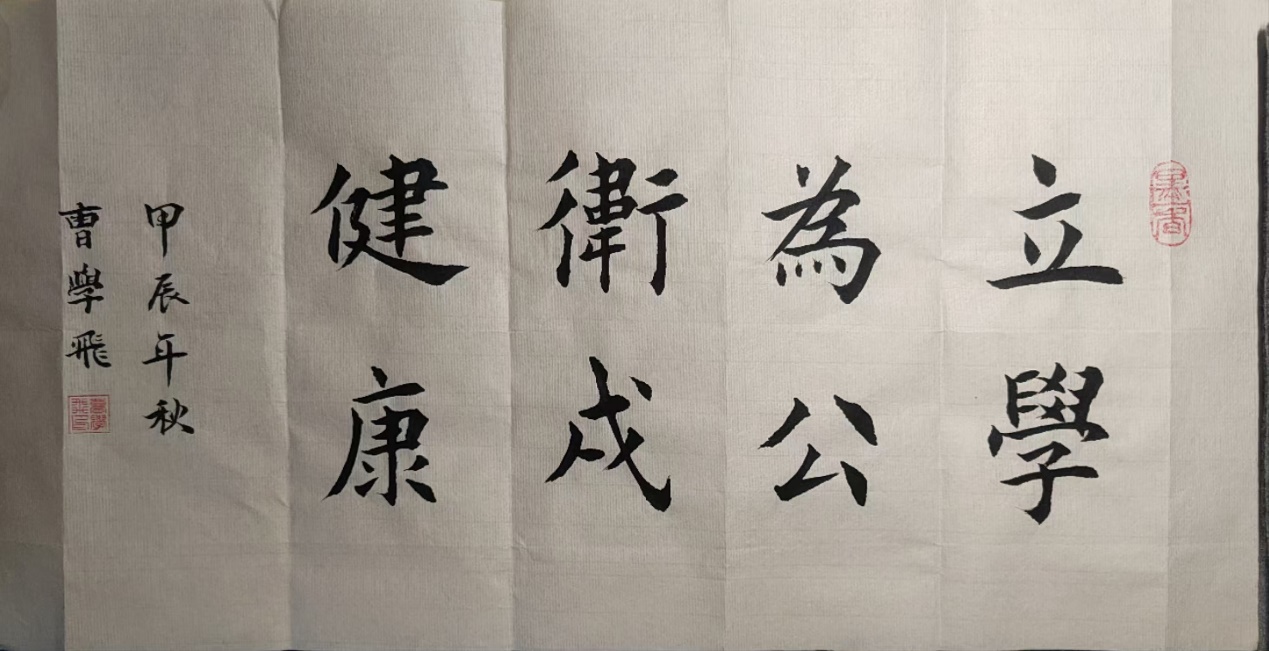 墨香
立學
為公
衛戍
健康
甲辰年秋
曹學飛